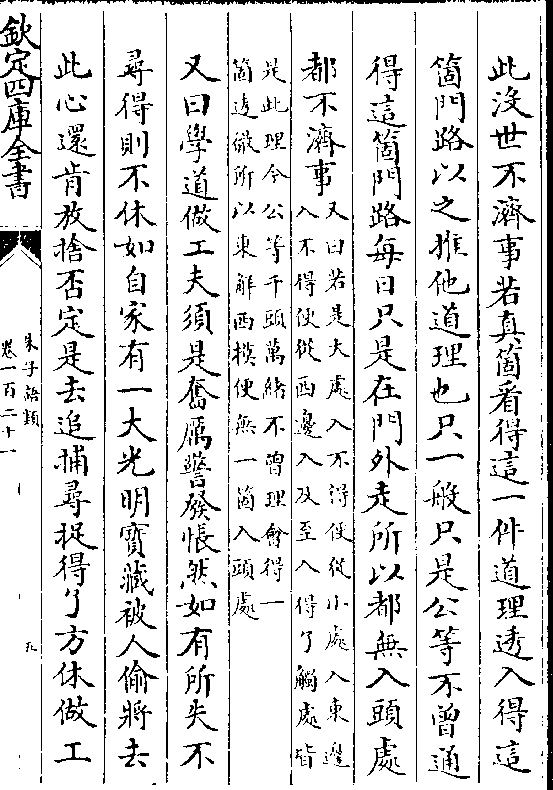 此没世不濟事若真箇看得這一件道理透入得這
箇門路以之推他道理也只一般只是公等不曾通
得這箇門路每日只是在門外走所以都無入頭處
都不濟事
又曰若是大處入不得便從小處入東邊
入不得便從西邊入及至入得了觸處皆
是此理今公等千頭萬緒不曾理會得一
箇透徹所以東解西模便無一箇入頭處
又曰學道做工夫須是奮厲警發悵然如有所失不
尋得則不休如自家有一大光明寶藏被人偷將去
此心還肯放捨否定是去追捕尋捉得了方休做工
欽定四庫全書
朱子語類
卷一百二十一
九